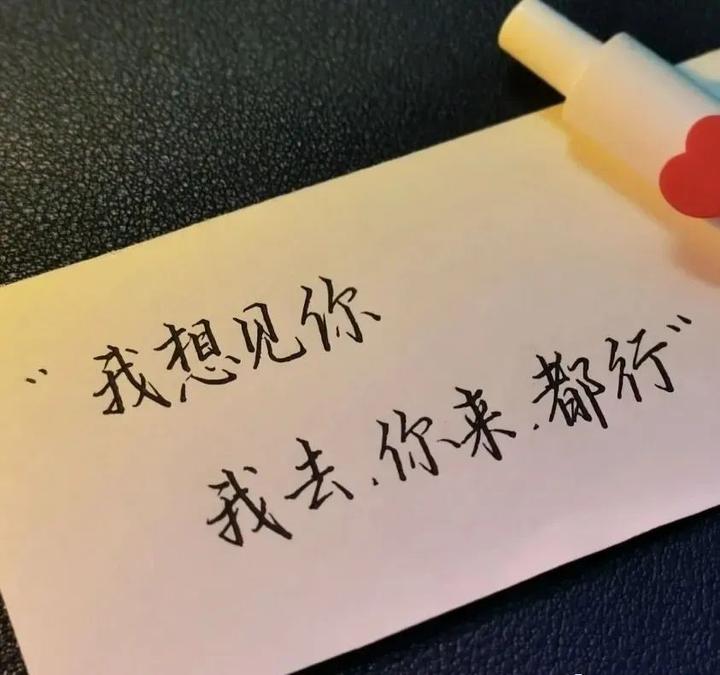 “我想见你
我去.你来.都行”